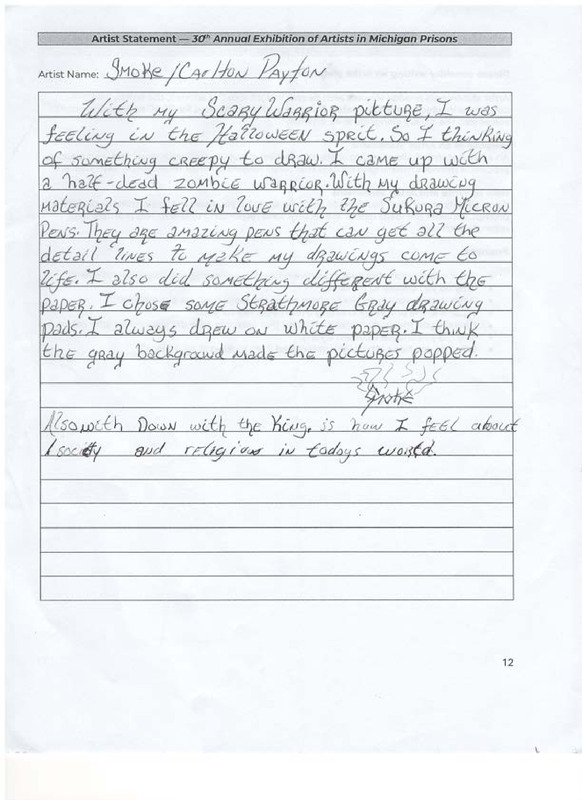 Artist Statement — 30th Annual Exhibition of Artists in Michigan Prisons
Artist Name: Smoke/Carlton Payton
With my Scary Warrior pitture, I was
feeling in the Halloween sprit. So I thinking
of something creepy to draw. I came up with
a half-dead zombie warrior. With my drawing
materials I fell in love with the Sukura Micron
Pens. They are amazing pens that can get all the
detail lines to make my drawings come to
life. I also did something different with the
paper. I chose some Strathmore Gray drawing
pads. I always drew on white paper. I think
the gray background made the pictures popped.
Smoke
Also with Down with the King, is how I feel about
society and religion in todays world.
12